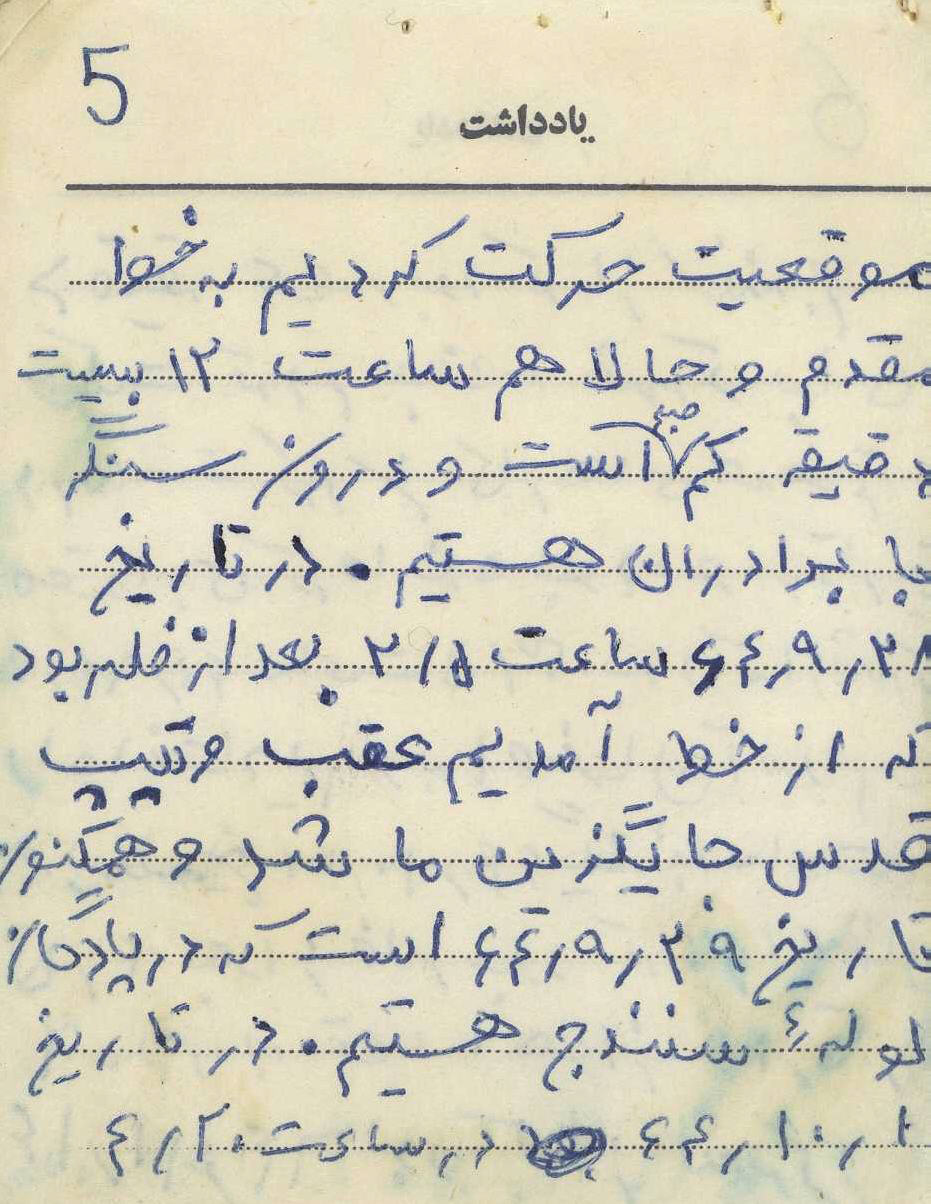 5
یادداشت
موقعیت حرکت کردیم به خط
مقدم و حالا هم ساعت ۱۲ بیست
دقیقه کم صبح است و در روز سنگر
با برادران هستیم. در تاریخ
۶۴٫۹٫۲۸ ساعت ۲/۵ بعد از ظهر بود
که از خط آمدیم عقب و تیپ
قدس جایگزین ما شد و همکنون
تاریخ ۶۴٫۹٫۲۹ است که در پادگان
لوله سنندج هستیم. در تاریخ
۶۴٫۱۰٫۱ در ساعت ۴٫۲۰